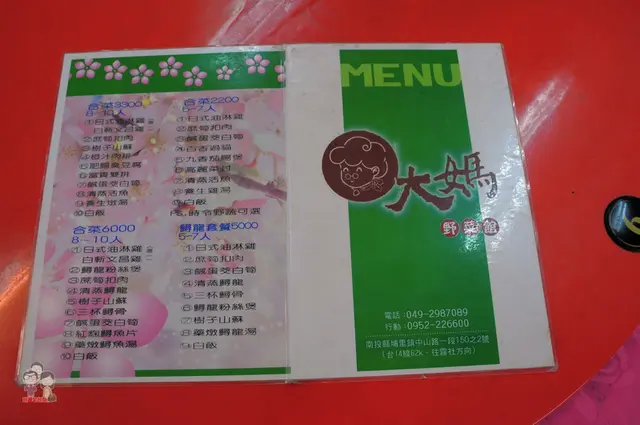 合菜3300
8-10人
①日式油淋雞
白斬文昌雞
②庶筍扣肉
③樹子山蘇
④橙汁肉排
⑥富貴雙拼
⑦鹹蛋茭白筍
⑧清蒸活魚
⑨養生燉湯
⑩白飯
合菜2200
5-7人
①日式油淋雞
②庶筍扣肉
③鹹蛋茭白筍
④古香過貓
⑤九香茄腸煲
⑥高麗菜封
⑦清蒸活魚
⑧養生雞湯
⑨白飯
時令野蔬可選
合菜6000
8~10人
①日式油淋雞
白斬文昌雞
②鱘龍粉絲煲
③庶筍扣肉
④清蒸鱘龍
⑤樹子山蘇
⑥三杯鱘骨
⑦鹹蛋茭白筍
⑧紅麴鱘魚片
⑨藥燉鱘魚湯
⑩白飯
鱘龍套餐5000
5-7人
①日式油淋雞
②庶筍扣肉
③鹹蛋茭白筍
④清蒸鱘龍
⑤三杯鱘骨
⑥鱘龍粉絲煲
⑦樹子山蘇
⑧藥燉鱘龍湯
⑨白飯
MENU
大媽
野菜館
電話:049-2987089
行動:0952-226600
南投縣埔里鎮中山路一段150之2號
(台14線62k，往霧社方向)